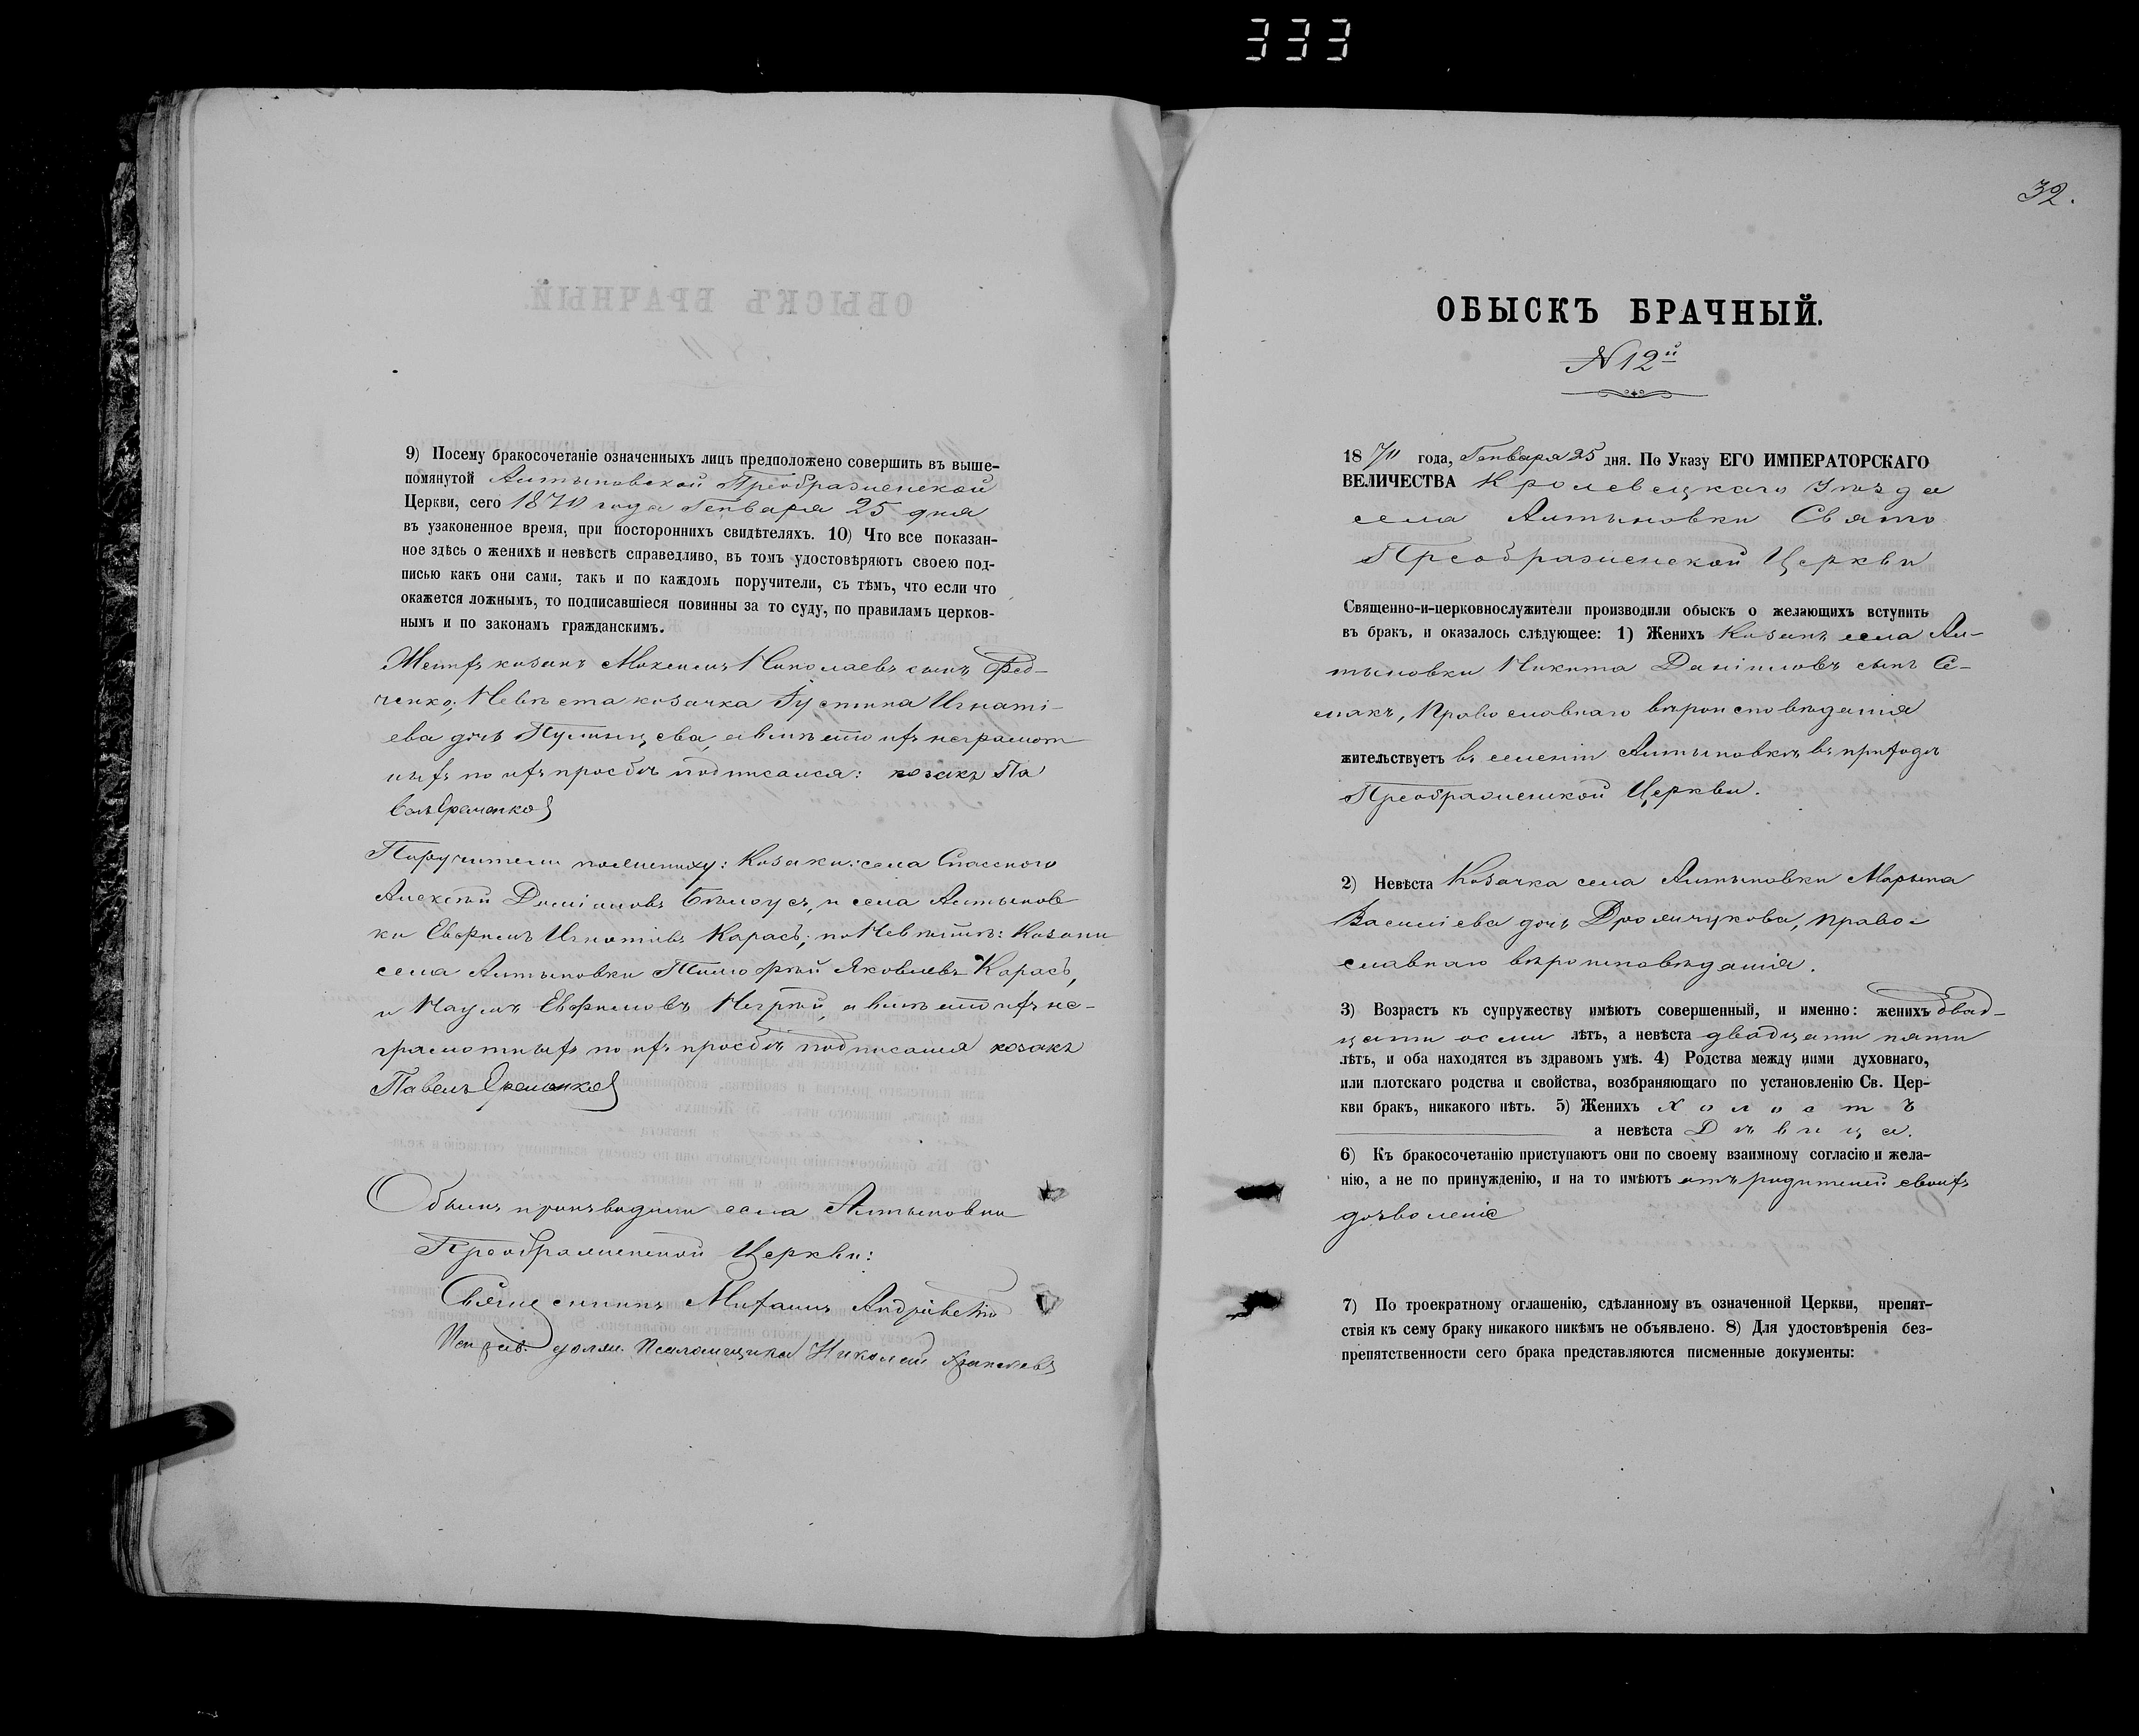 333
9) Посему бракосочетаніе означенныхъ лицъ предположено совершить въ выше-
помянутой Алтыновской Преображенской
Церкви, сего 1870 года Генваря 25 дня
въ узаконенное время, при постороннихъ свидѣтеляхъ. 10) Что все показан-
ное здѣсь о женихѣ и невѣстѣ справедливо, въ томъ удостовѣряютъ своею под-
писью какъ они сами, такъ и по каждомъ поручители, съ тѣмъ, что если что
окажется ложнымъ, то подписавшіеся повинны за то суду, по правиламъ церков-
нымъ и по законамъ гражданскимъ.
Женихъ козакъ Николаевъ сынъ Фед-
ченко, Невѣста козачка Іустина Игнаті-
ева дочь а вмѣсто ихъ неграмот
ныхъ по ихъ просьбѣ подписался: козакъ Па
велъ Еременко
Поручители по женихѣ: Козаки: села Спасского
Алексѣй Бѣлоусъ, и села Алтынов
ки Евфимъ Игнатіевъ Карась; по Невѣстѣ: Козаки
села Алтыновки Тимофѣй Яковлевъ Карась,
и Наумъ Евфимовъ а вмѣсто ихъ не-
грамотныхъ по ихъ просьбѣ подписался козакъ
Павелъ Еременко
Обыскъ производили села Алтыновки
Преображенской Церкви:
Священникъ Михаилъ
Исправ. должн. Псаломщика Николай
32.
ОБЫСКЪ БРАЧНЫЙ.
N 12й
1870 года, Генваря 25 дня. По Указу ЕГО ИМПЕРАТОРСКАГО
ВЕЛИЧЕСТВА Кролевецкаго уѣзда
села Алтыновки Свято
Преображенской Церкви
Священно-и-церковнослужители производили обыскъ о желающихъ вступить
въ бракъ, и оказалось слѣдующее: 1) Женихъ Козакъ села Ал-
тыновки Никита Даніиловъ сынъ Се-
макъ, Православнаго вѣроисповѣданія
жительствуетъ въ селеніи Алтыновкѣ въ приходѣ
Преображенской Церкви.
2) Невѣста Козачка села Алтыновки Марына
Василіева дочь право-
славнаго вѣроисповѣданія.
3) Возрастъ къ супружеству имѣютъ совершенный, и именно: женихъ двад-
цати осми лѣтъ, а невѣста двадцати пяти
лѣтъ, и оба находятся въ здравомъ умѣ. 4) Родства между ними духовнаго,
или плотскаго родства и свойства, возбраняющаго по установленію Св. Цер-
кви бракъ, никакого нѣтъ. 5) Женихъ холостъ
а невѣста Дѣвица.
6) Къ бракосочетанію приступаютъ они по своему взаимному согласію и жела-
нію, а не по принужденію, и на то имѣютъ отъ родителей своихъ
дозволеніе
7) По троекратному оглашенію, сдѣланному въ означенной Церкви, препят-
ствія къ сему браку никакого никѣмъ не объявлено. 8) Для удостовѣренія без-
препятственности сего брака представляются писменные документы: